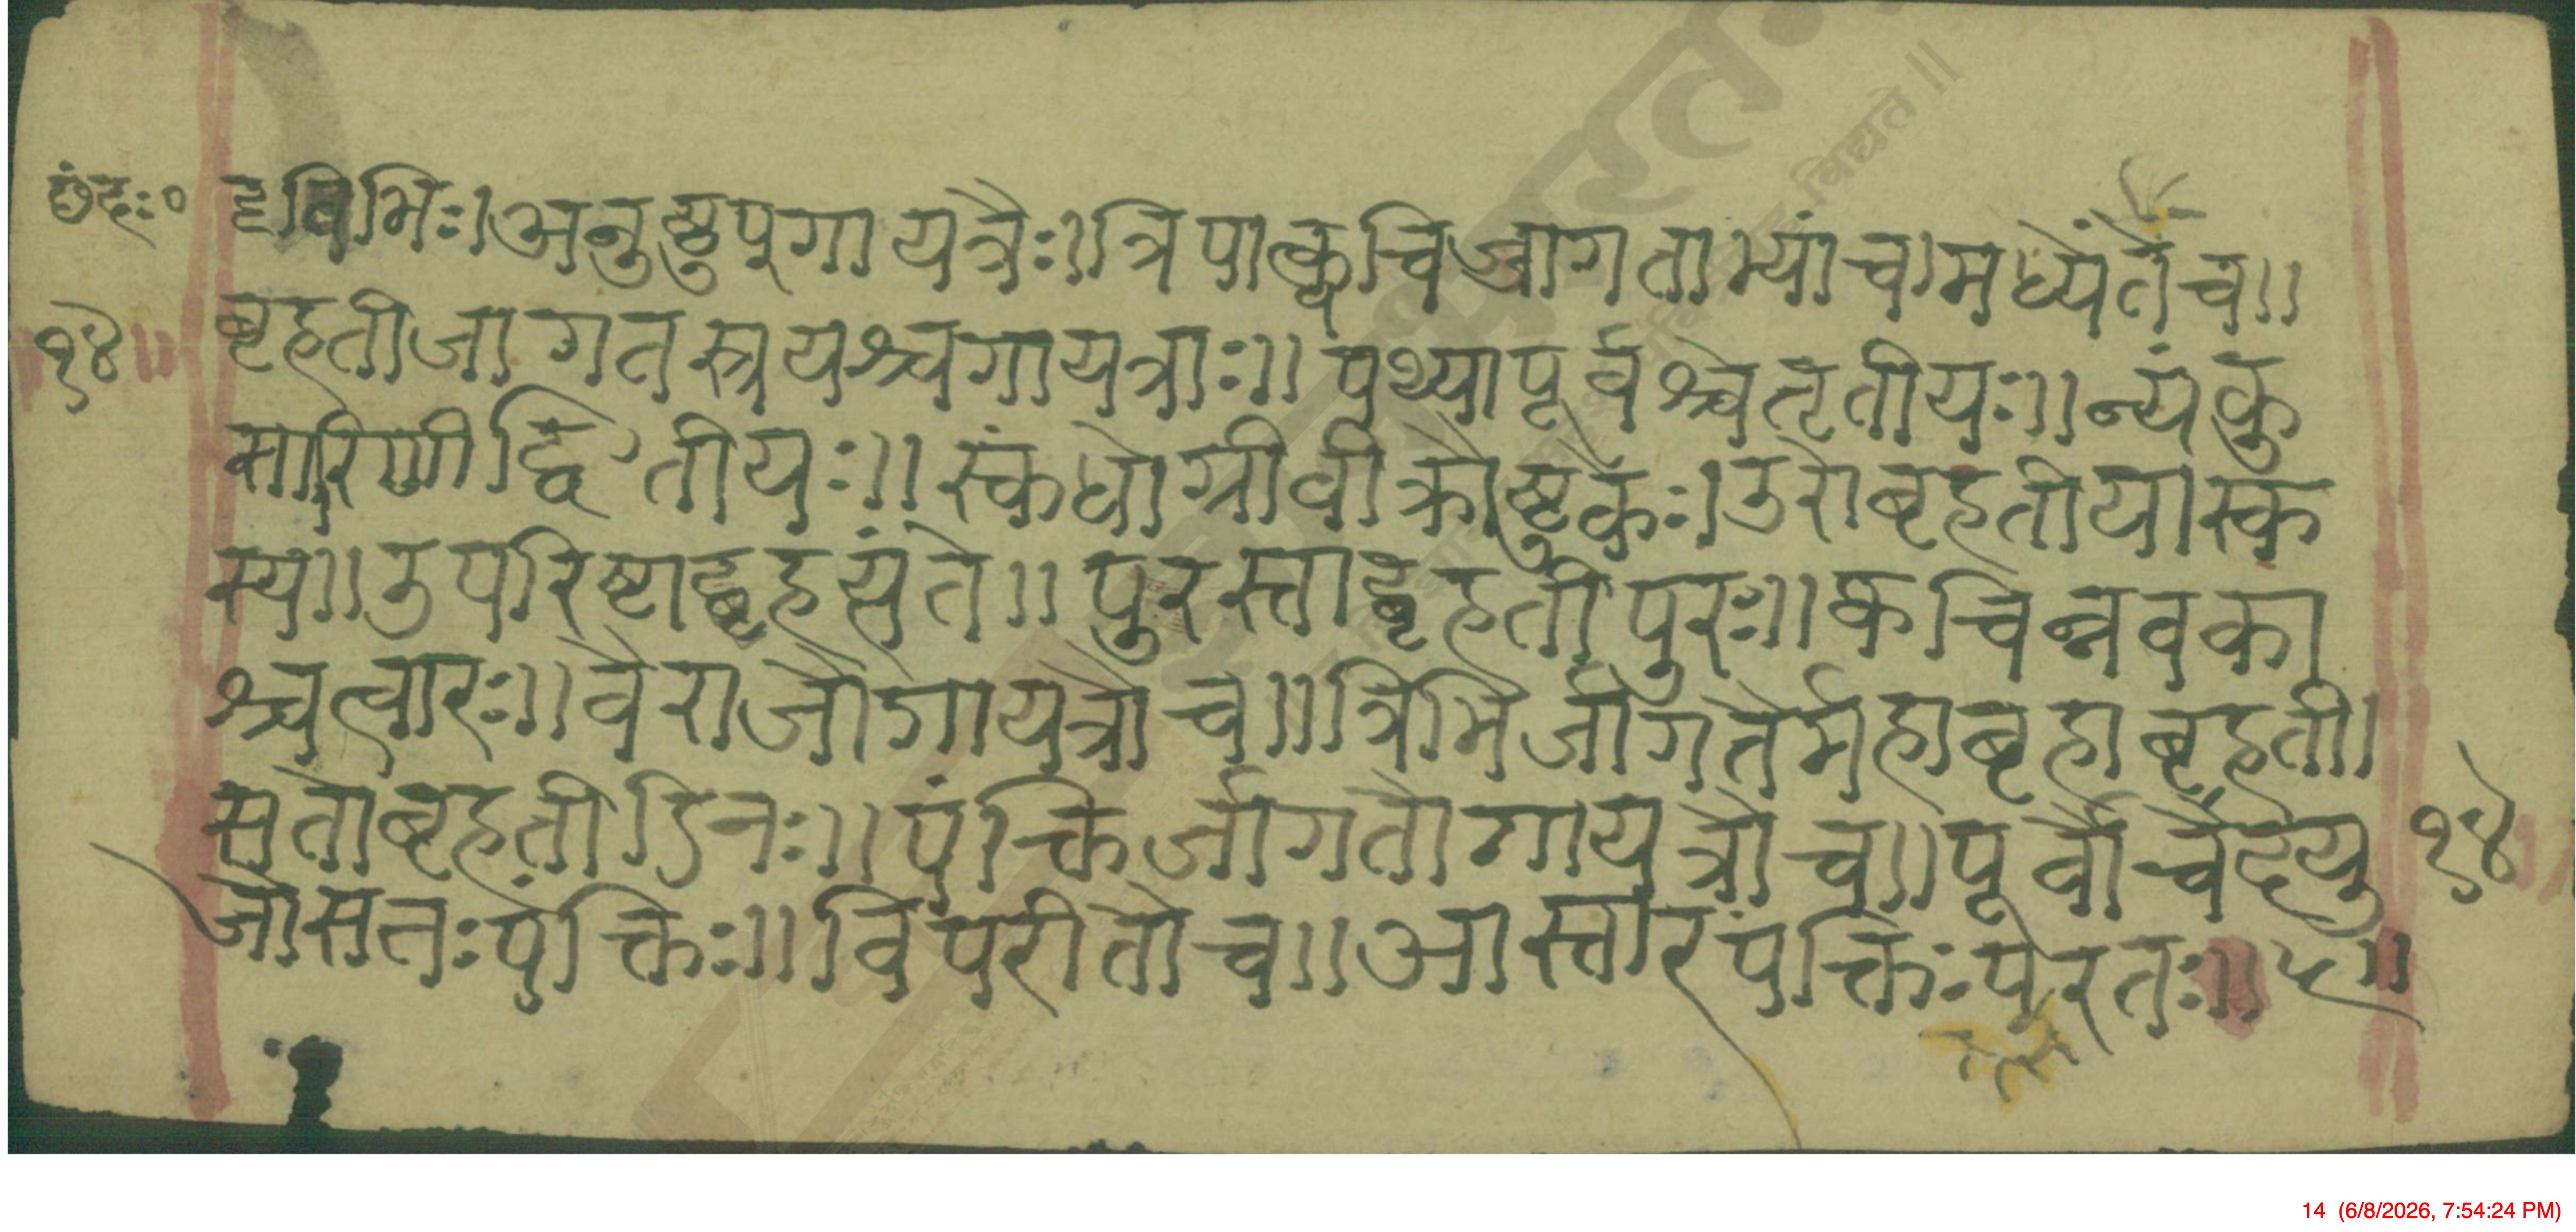 छंदः०
दृविभिः।अनुष्टुप्गायत्रैः।त्रिपात्क्वचिज्जागताभ्यांच।मध्येंतेच॥
१४
बृहतीजागतस्त्रयश्चगायत्राः॥पथ्यापूर्वश्चेतृतीयः॥न्यंकु
सारिणीद्वितीयः॥स्कंधोग्रीवीक्रौष्टुकेः।उरोबृहतीयास्क
स्य॥उपरिष्टाद्बृहत्यंते॥पुरस्ताद्बृहतीपुरः॥क्वचिन्नवका
श्चत्वारः॥वैराजौगायत्रौच॥त्रिभिर्जागतैर्महाबृहाबृहती।
सतोबृहतीडिनः॥पंक्तिर्जागतौगायत्रौच॥पूर्वौचेदयु
१४
जौसतःपंक्तिः॥विपरीतौच॥आस्तारपंक्तिःपरतः॥५॥
विद्यते॥
14 (6/8/2026, 7:54:24 PM)